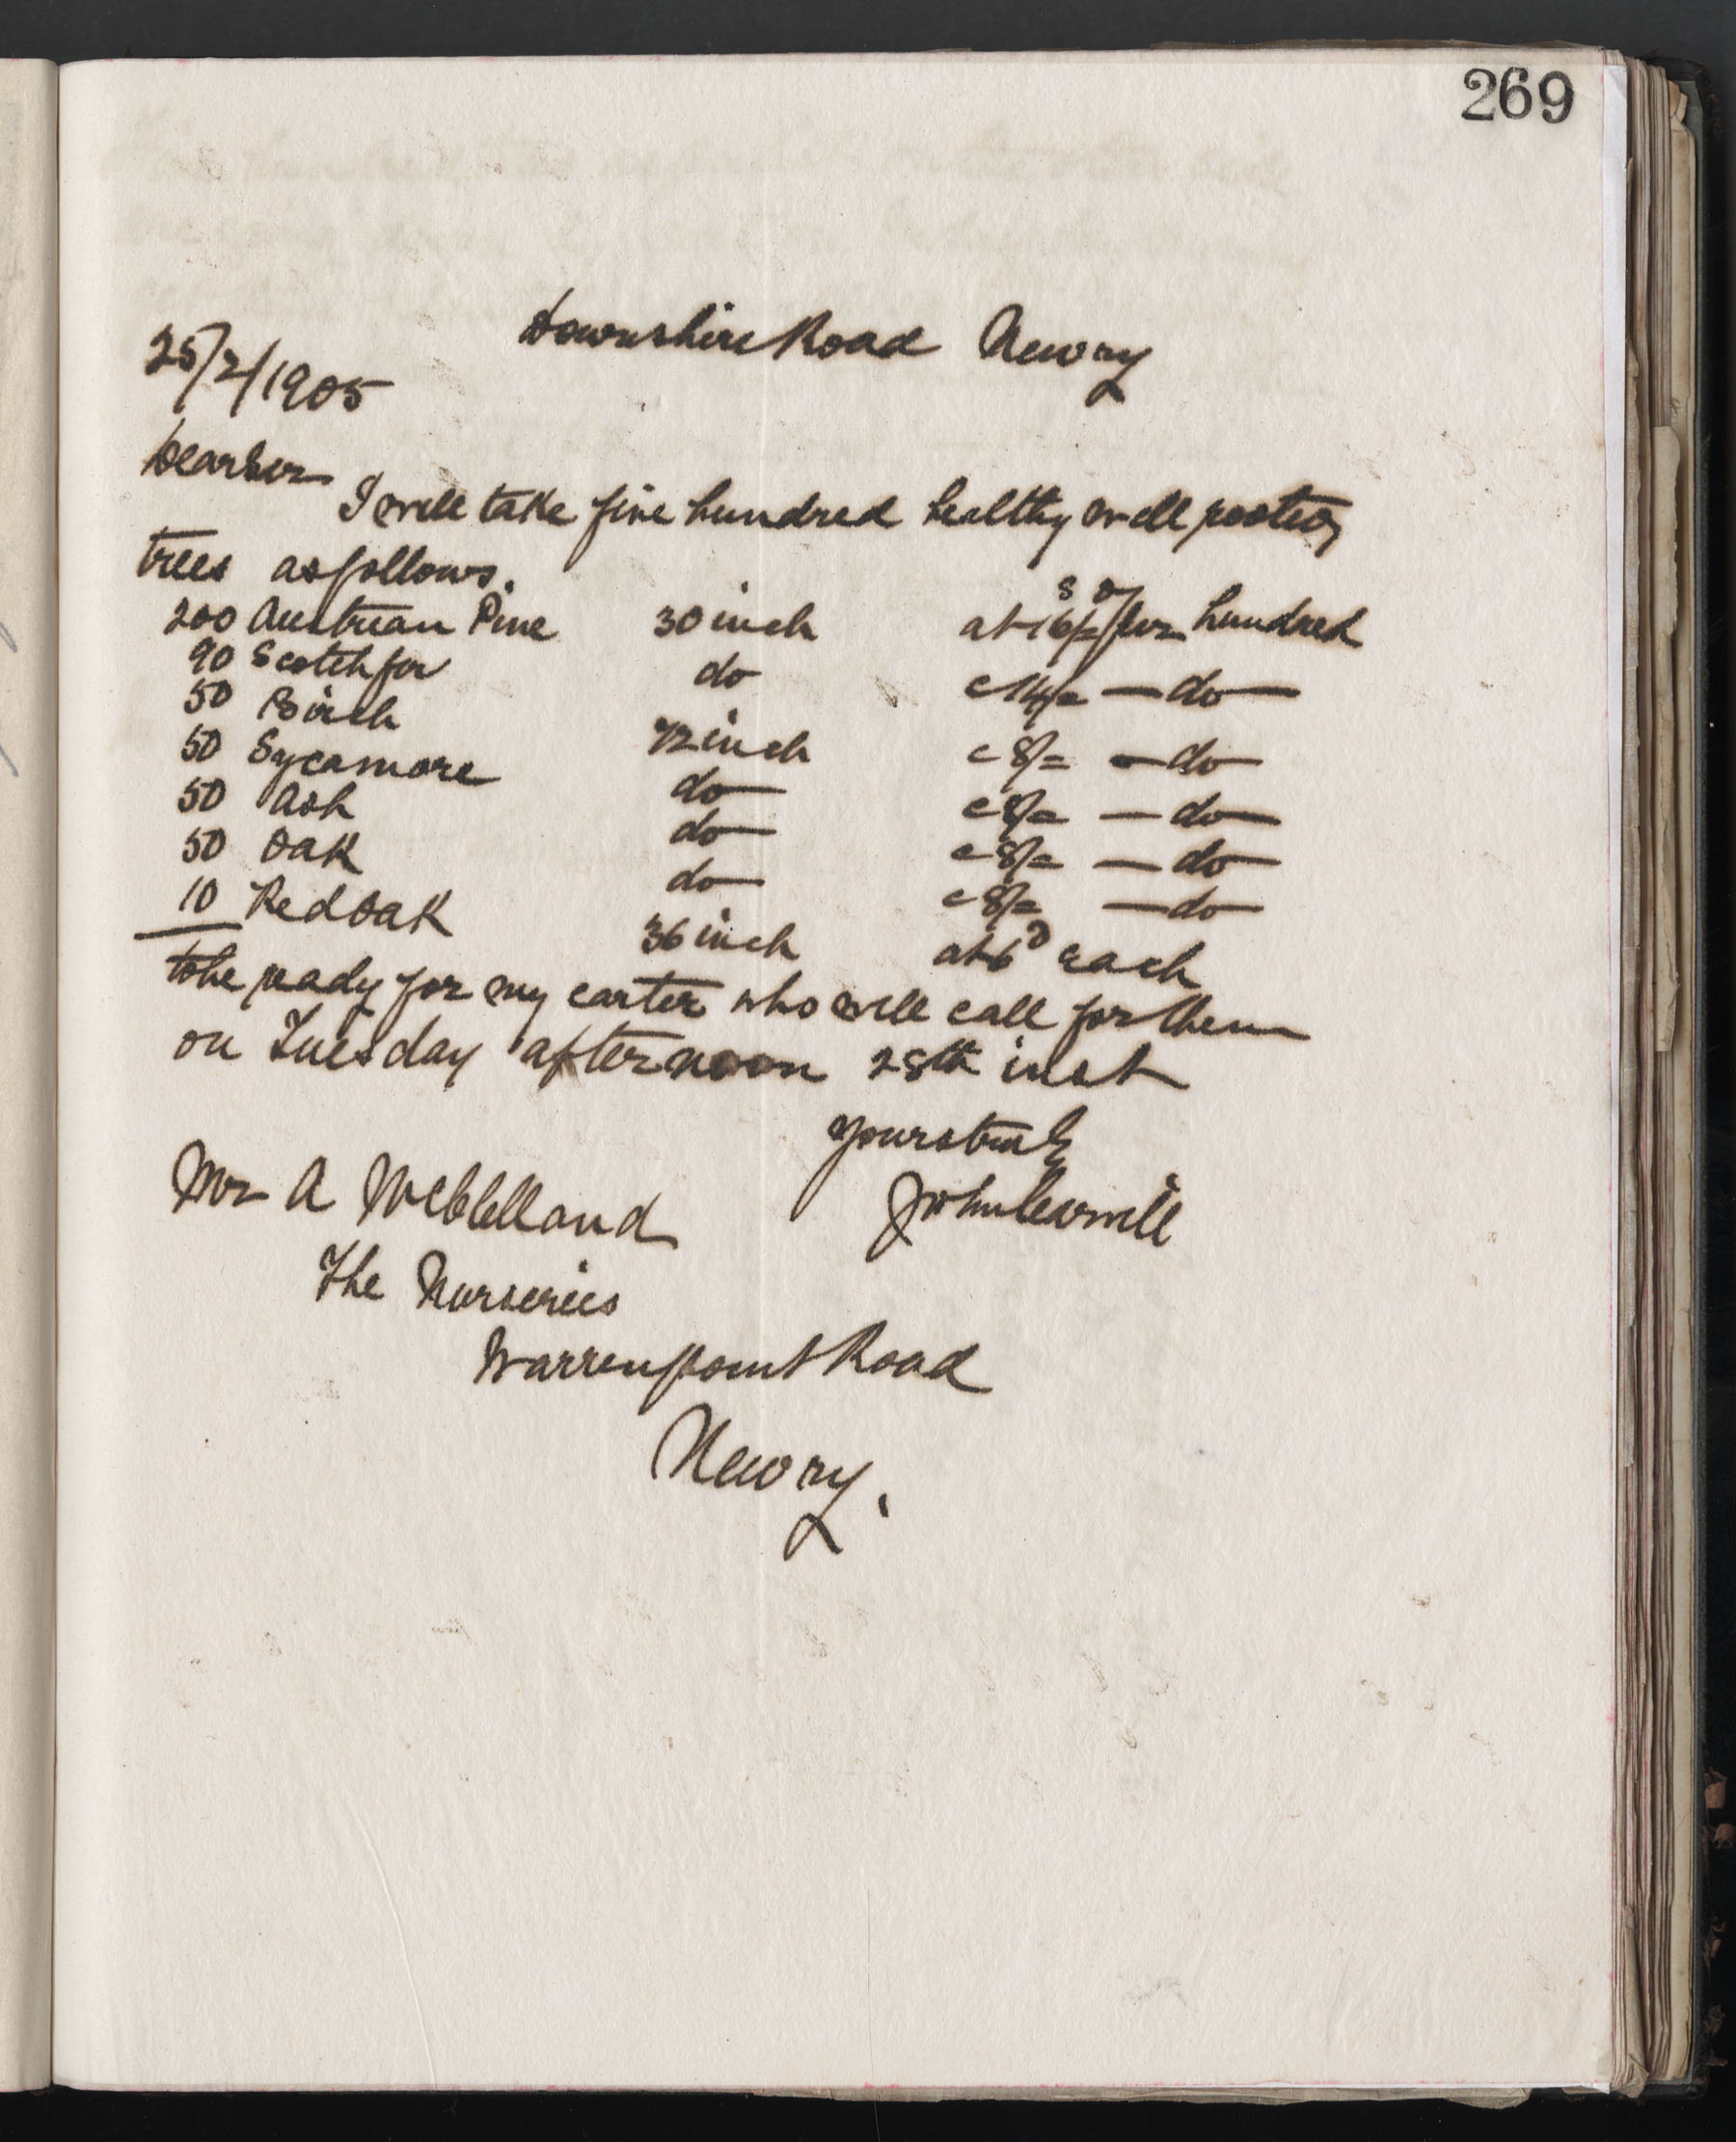 269
Downshire Road Newry
25/2/1905
Dear Sir
I will take five hundred healthy well rooted
trees as follows.
200 Austrian Pine 30 inch at 16/= per hundred
90 Scotch fir do @ 14/= — do —
50 Birch 72 inch @ 8/= — do
50 Sycamore do @ 8/= — do —
50 Ash do @ 8/= — do
50 Oak do @ 8/= — do
10 Red Oak 36 inch at 6D each
to be ready for my carter who will call for them
on Tuesday afternoon 28th inst
Yours truly
Mr A McClelland
The Nurseries
Warrenpoint Road
Newry.